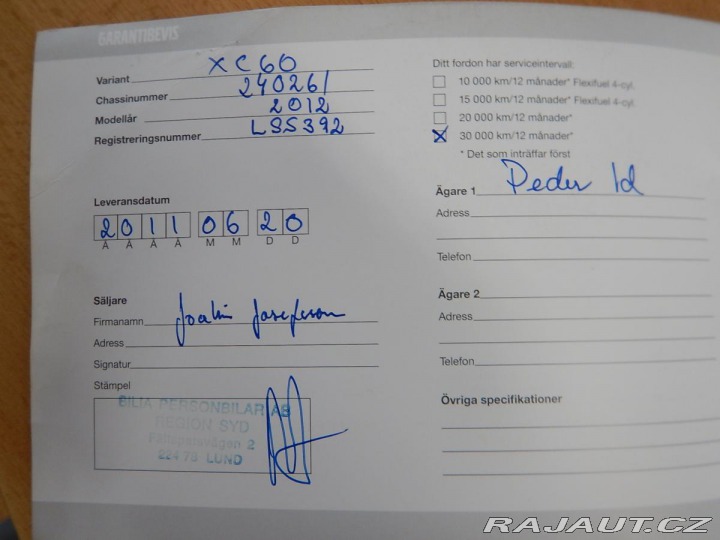 GARANTIBEVIS
Variant XC60
Chassinummer 240261
Modellår 2012
Registreringsnummer LSS392
Leveransdatum
2011 06 20
Å Å Å Å M M D D
Säljare
Firmanamn Joakim Josefsson
Adress
Signatur
Stämpel
BILIA PERSONBILAR AB
REGION SYD
2
224 78 LUND
Ditt fordon har serviceintervall:
10 000 km/12 månader* Flexifuel 4-cyl.
15 000 km/12 månader* Flexifuel 4-cyl.
20 000 km/12 månader*
30 000 km/12 månader*
* Det som inträffar först
Ägare 1 Peder Id
Adress
Telefon
Ägare 2
Adress
Telefon
Övriga specifikationer
RAJAUT.CZ